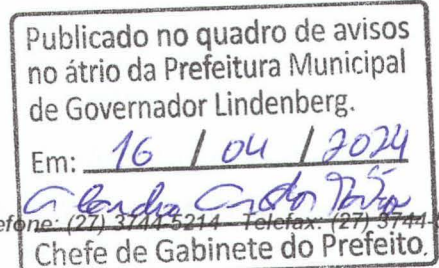 Publicado no quadro de avisos
no átrio da Prefeitura Municipal
de Governador Lindenberg.
Em: 16 / 04 / 2024
efone: (27) 3744-5214 - Telefax: (27) 3744-
Chefe de Gabinete do Prefeito.